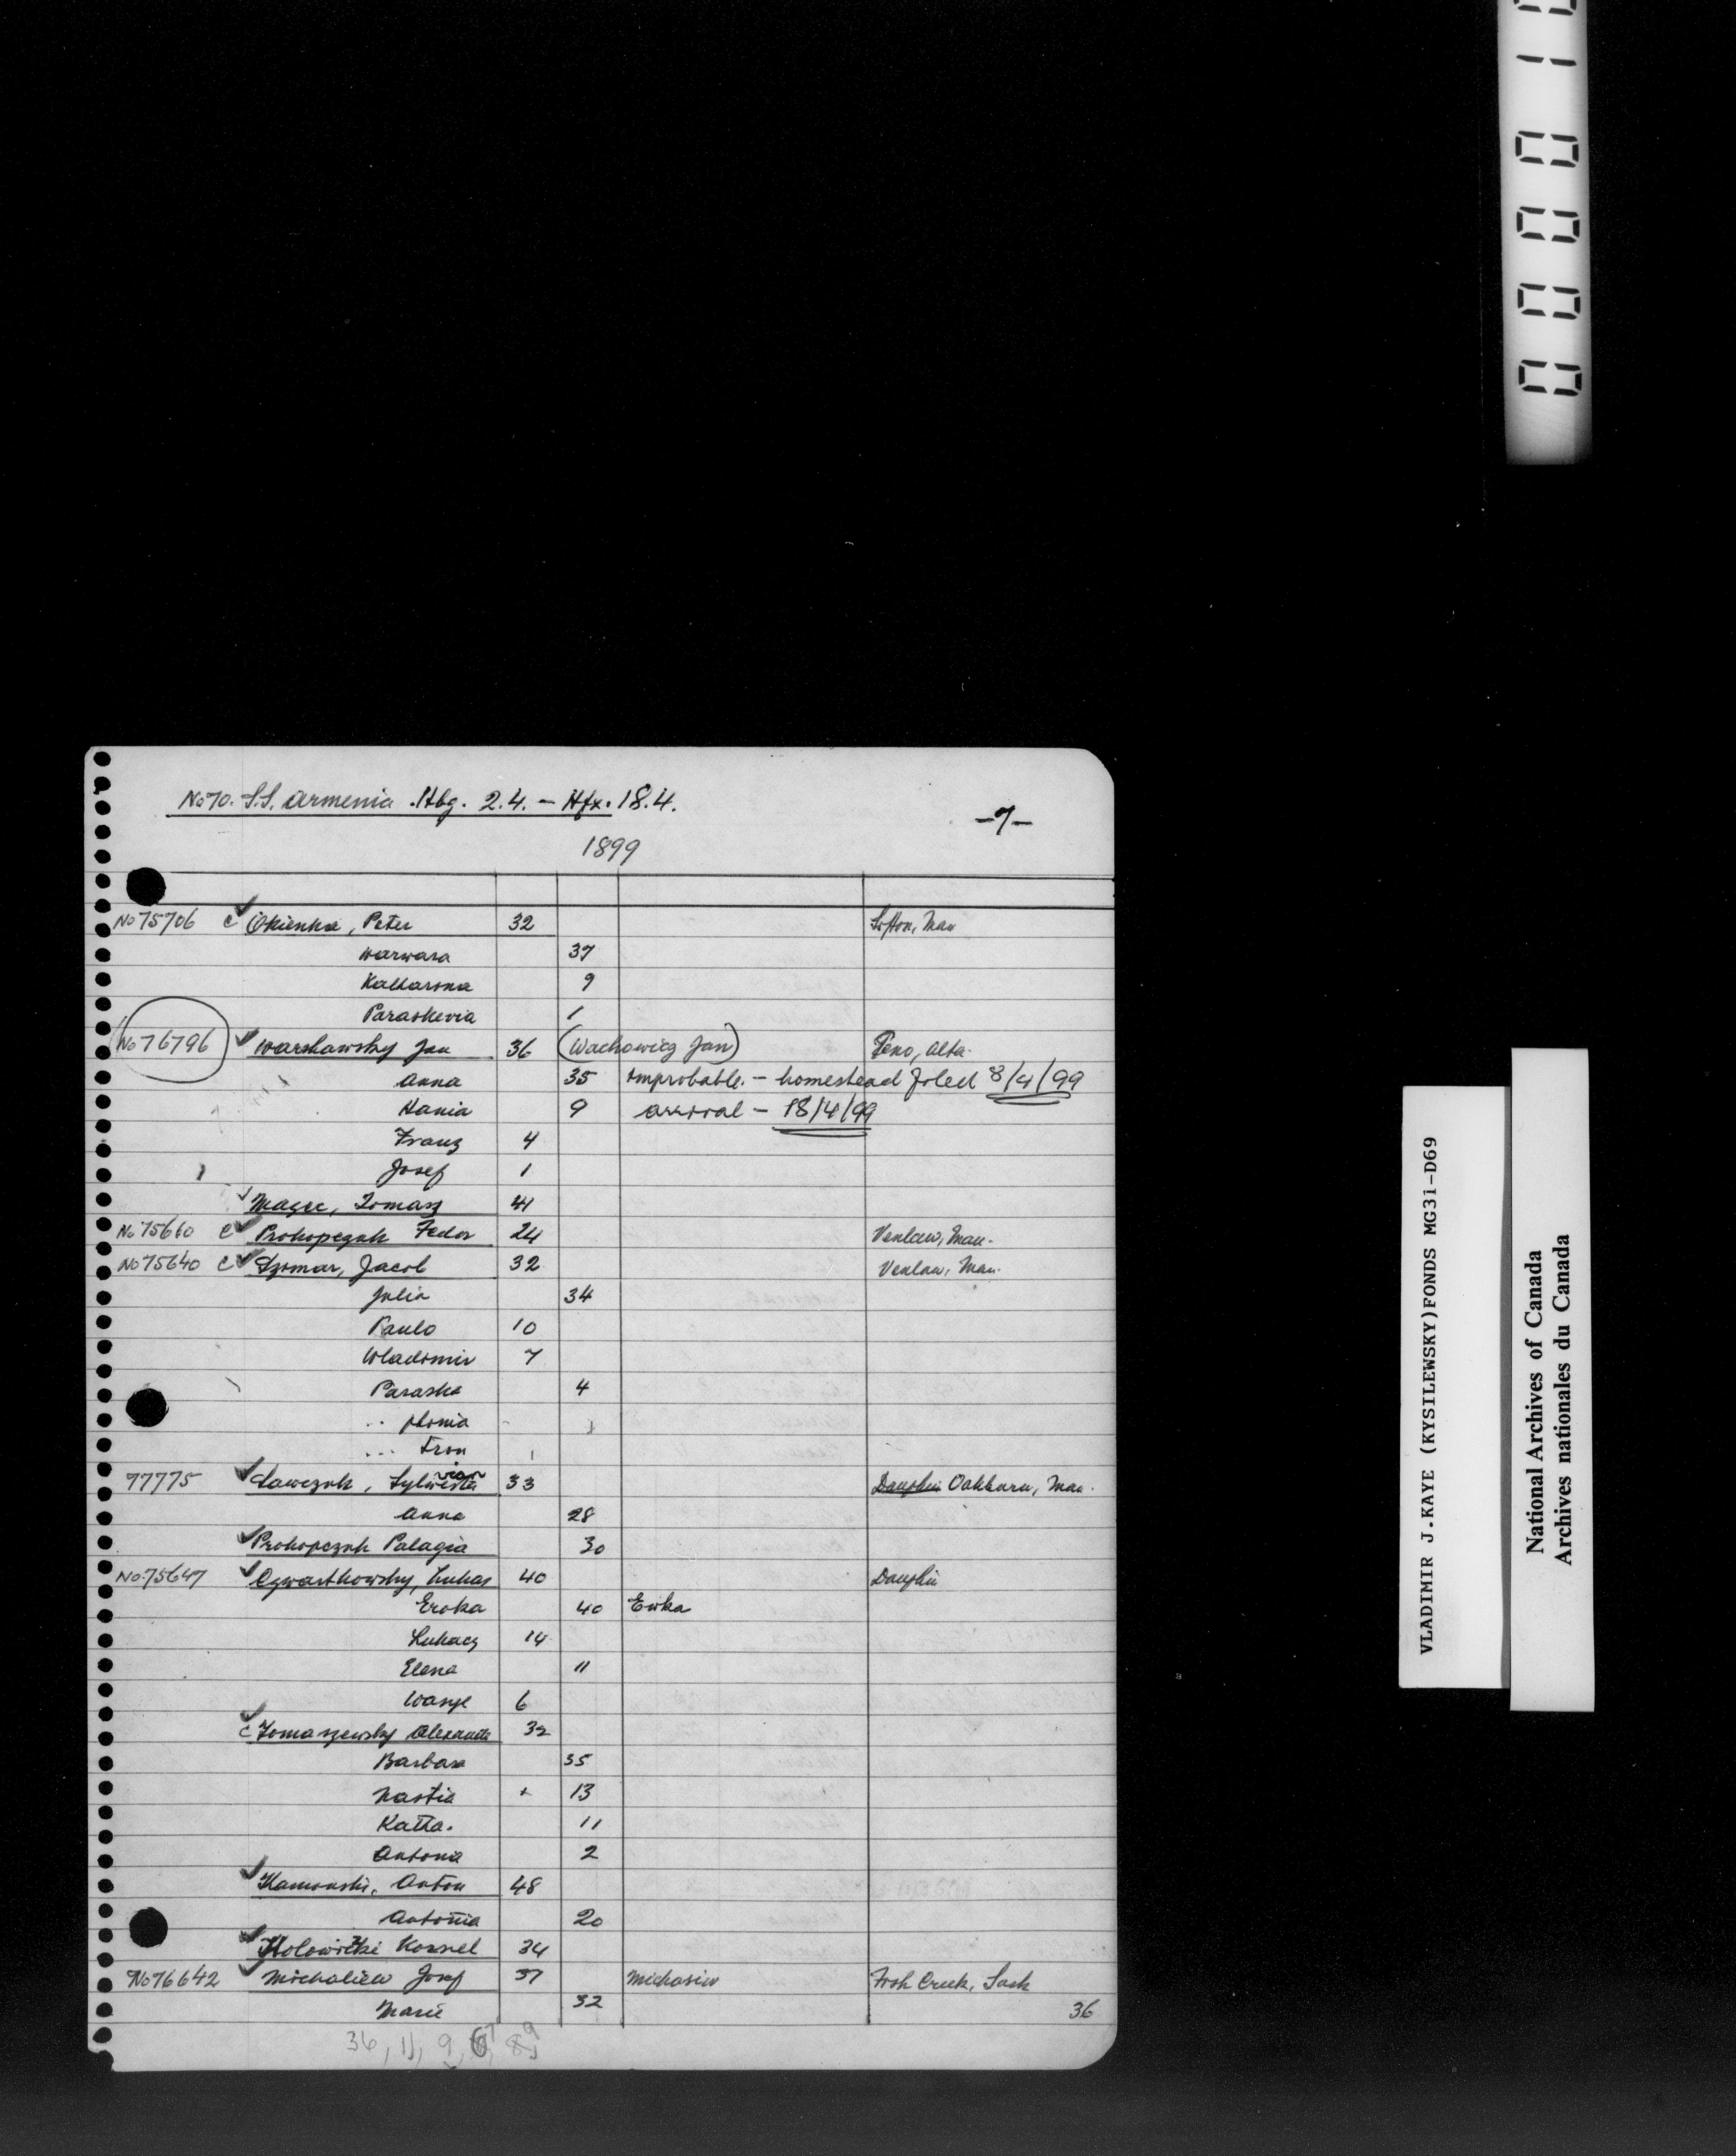 No 70. S.S. Armenia. Hbg. 2.4. – Hfx. 18.4.
–7–
1899
No 75706 c ✓ Okienka, Peter 32 Sifton, Man
Warwara 37
Katharina 9
Paraskevia 1
No 76796 ✓ Warshawsky Jan 36 (Wachowicz Jan) Peno, Alta.
Anna 35 improbable. – homestead filed 8/4/99
Hania 9 arrival – 18/4/99
Franz 4
Josef 1
✓ Magec, Tomasz 41
No 75660 c ✓ Prokopczuk Fedor 24 Venlaw, Man.
No 75640 c ✓ Dziomar, Jacob 32 Venlaw, Man.
Julia 34
Paulo 10
Wladimir 7
Paraska 4
.. phonia 1
... Iron 1
77775 ✓ Sawczuk, Sylwester vian 33 Dauphin Oakburn, Man.
Anna 28
✓ Prokopczuk Palagia 30
No. 75647 ✓ Cgwartkowsky, Lukas 40 Dauphin
Eroka 40 Ewka
Lukacz 14
Elena 11
Wanje 6
c ✓ Tomaszewsky Alexander 32
Barbara 35
Nastia + 13
Katha. 11
Antonia 2
✓ Kamonski, Anton 48
Antonia 20
✓ Holowitzki Kornel 34
No 76642 ✓ Michaliew Josef 37 Michasiw Fish Creek, Sask
Marie 32
36
36, 11, 9, 7, 9
VLADIMIR J.KAYE (KYSILEWSKY)FONDS MG31-D69
National Archives of Canada
Archives nationales du Canada